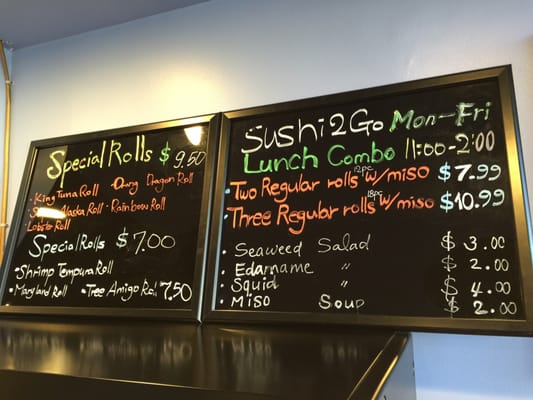 Special Rolls $9.50
King Tuna Roll • Dragon Roll
Alaska Roll • Rainbow Roll
Lobster Roll
Special Rolls $7.00
• Shrimp Tempura Roll
• Maryland Roll • Tree Amigo Roll $7.50
Sushi 2 Go Mon-Fri
Lunch Combo 11:00-2:00
12pc
• Two Regular rolls w/miso $7.99
18pc
• Three Regular rolls w/miso $10.99
• Seaweed Salad $3.00
• Edamame " $2.00
• Squid " $4.00
• Miso Soup $2.00